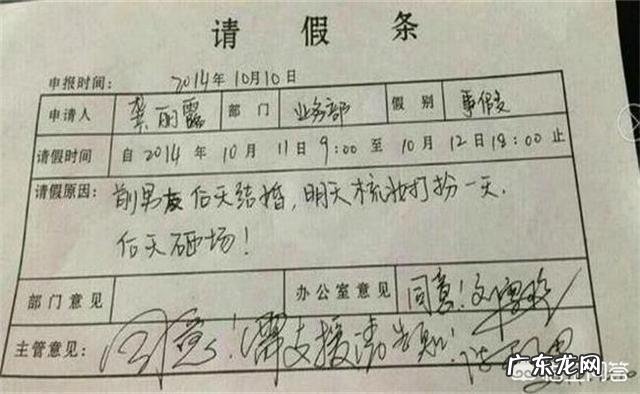 请假条
申报时间： 2014年10月10日
申请人 龚丽露 部门 业务部 假别 事假
请假时间 自2014年10月11日9:00至10月12日18:00止
请假原因： 前男友后天结婚，明天梳妆打扮一天.
后天砸场！
部门意见 办公室意见 同意！
主管意见： 同意！需支援请告知！
广东龙网
www.gdhzlw.com
悟空问答